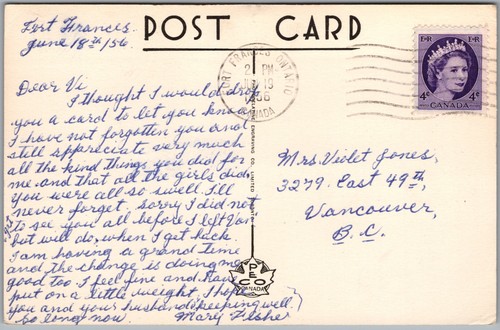 POST CARD
Fort Frances
June 18th/56
Dear Vi
I thought I would drop
you a card to let you know
I have not forgotten you and
still appreciate very much
all the kind things you did for
me and that all the girls did
you were all so swell. I'll
never forget. sorry I did not
get
to see you all before I left
but will do, when I get back.
I am having a grand time
and the change is doing me
good too I feel fine and have
put on a little weight. I hope
you and your husband keeping well
So long now Mary Fisher
FORT FRANCES ONTARIO
2 PM
19
CANADA
E II R E II R
4c 4c
CANADA
Mrs. Violet Jones,
3279. East 49th,
Vancouver,
B.C.
PECO
CANADA